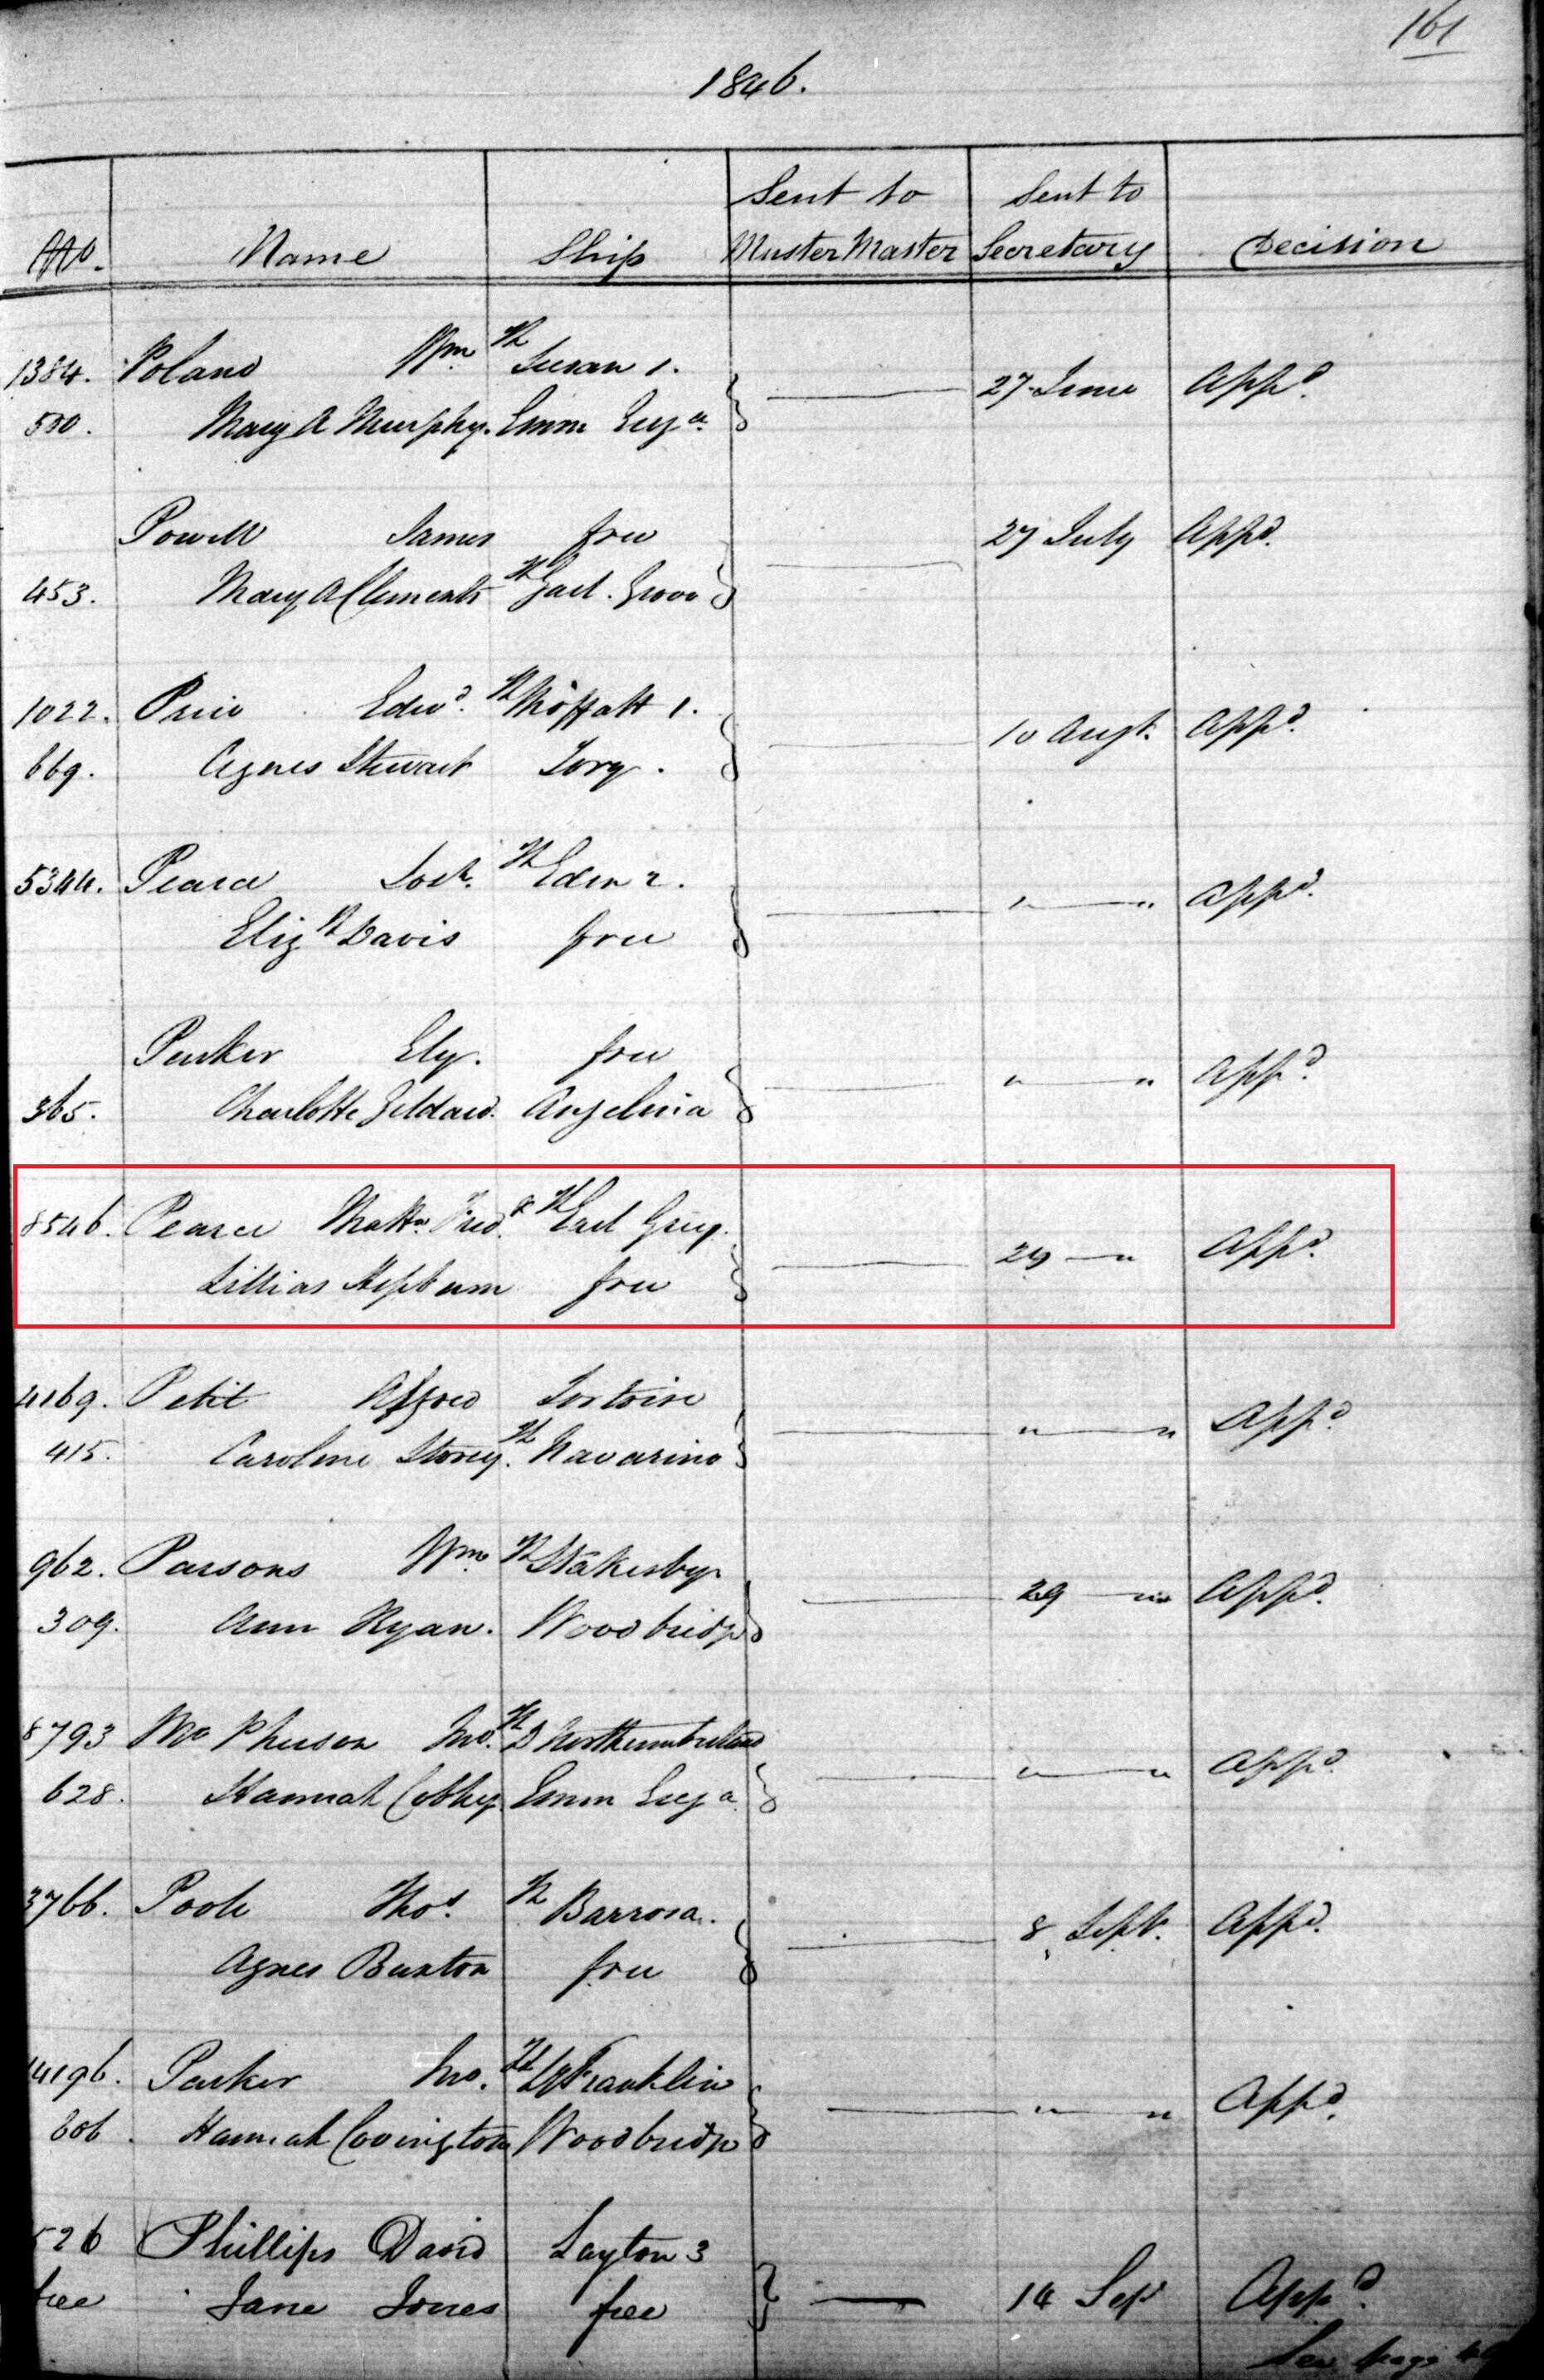 161
1846.
Sent to Sent to
No. Name Ship Muster Master Secretary Decision
1384. Poland Wm. H Susan 1. 27 June Appd.
500. Mary A Murphy. Emm Eug a.
Powell James free 27 July Appd.
453. Mary A Clements H Garl. Grove
1022. Price Edwd. H Moffatt 1. 10 Augt. Appd.
669. Agnes Stewart Tory.
5344. Pearce Josh. H Eden 2. " — " Appd.
Eliz h Davis free
Parker Ely. free " — " Appd.
365. Charlotte Angelina
8546. Pearce Matw. Fred. k H Earl Grey. 29 — " Appd.
Lillias Hepburn free
4169. Petit Alfred Tortoise " — " Appd.
415. Caroline Storey. H Navarino
962. Parsons Wm. H Stakesby 29 — " Appd.
309. Ann Ryan. Woodbridge
8793 Mc Pherson Jno. H D Northumberland " — " Appd.
628. Hannah Cobley Emm Eug a.
3766. Poole Thos. H Barrosa. 8 Sept. Appd.
Agnes Buxton free
4196. Parker Jno. H Ly Franklin " — " Appd.
606. Hannah Covington Woodbridge
526 Phillips David Layton 3 14 Sep Appd.
free Jane Jones free
See page